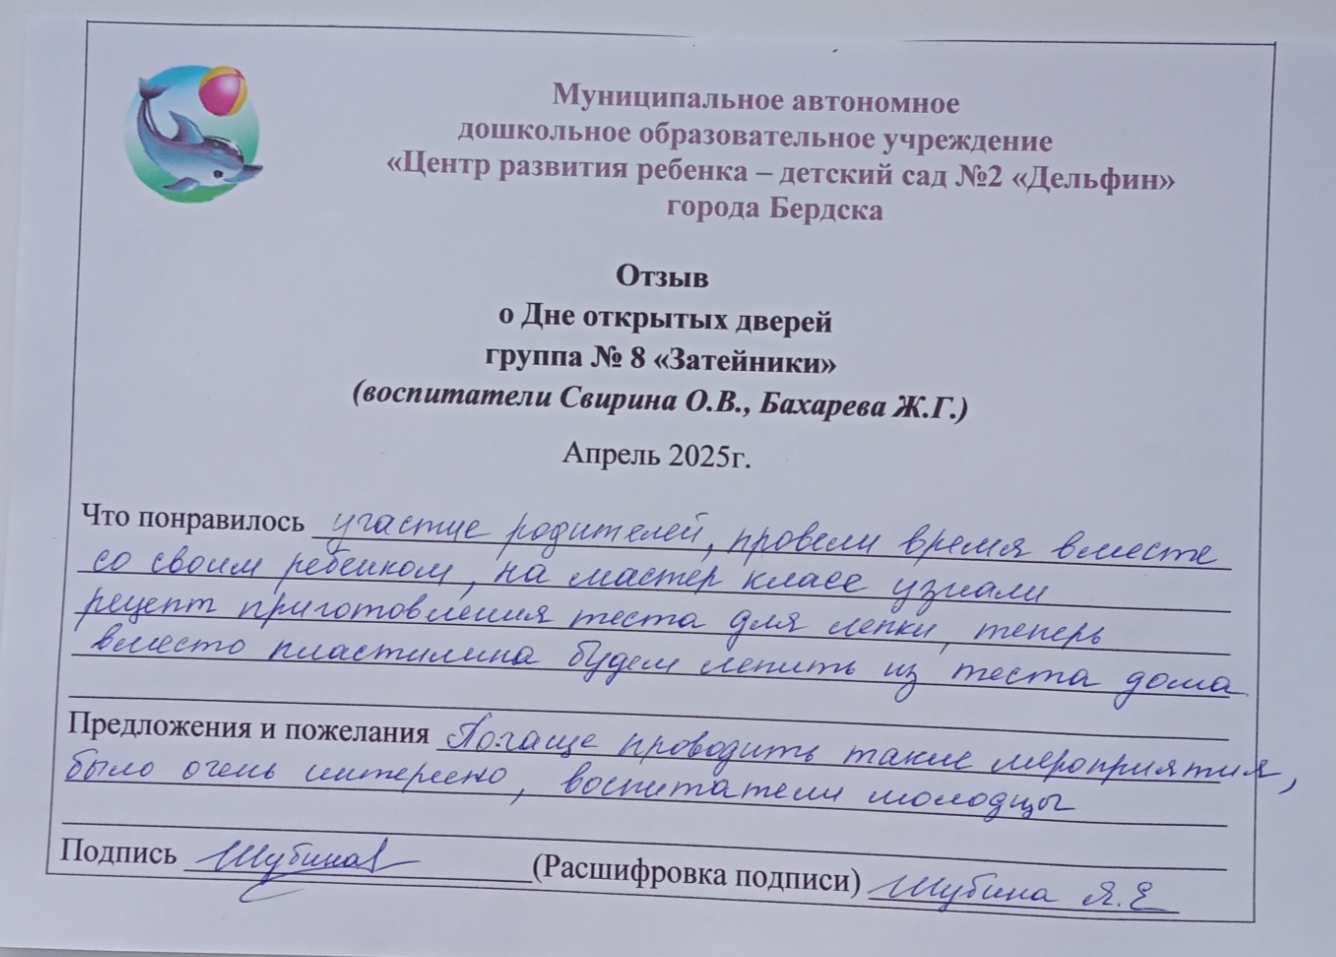 Муниципальное автономное
дошкольное образовательное учреждение
«Центр развития ребенка – детский сад №2 «Дельфин»
города Бердска
Отзыв
о Дне открытых дверей
группа № 8 «Затейники»
(воспитатели Свирина О.В., Бахарева Ж.Г.)
Апрель 2025г.
Что понравилось участие родителей, провели время вместе
со своим ребенком, на мастер классе узнали
рецепт приготовления теста для лепки, теперь
вместо пластилина будем лепить из теста дома
Предложения и пожелания Почаще проводить такие мероприятия,
было очень интересно, воспитатели молодцы
Подпись Шубина (Расшифровка подписи) Шубина Я.Е